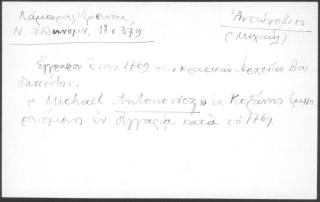 Λάμπρος, Έρευναι,
Ν. Ελληνομν. 18 σ 379
Ἀντώνοβετς
(Μιχαήλ)
Έγγραφον ἔτους 1769 τῶν κρατικῶν Ἀρχείων Βου
δαπέστης.
"Michael Antonovicz" ἐκ Κοζάνης ἐμπο
ρευόμενος ἐν Οὑγγαρίᾳ κατὰ τὸ 1769.